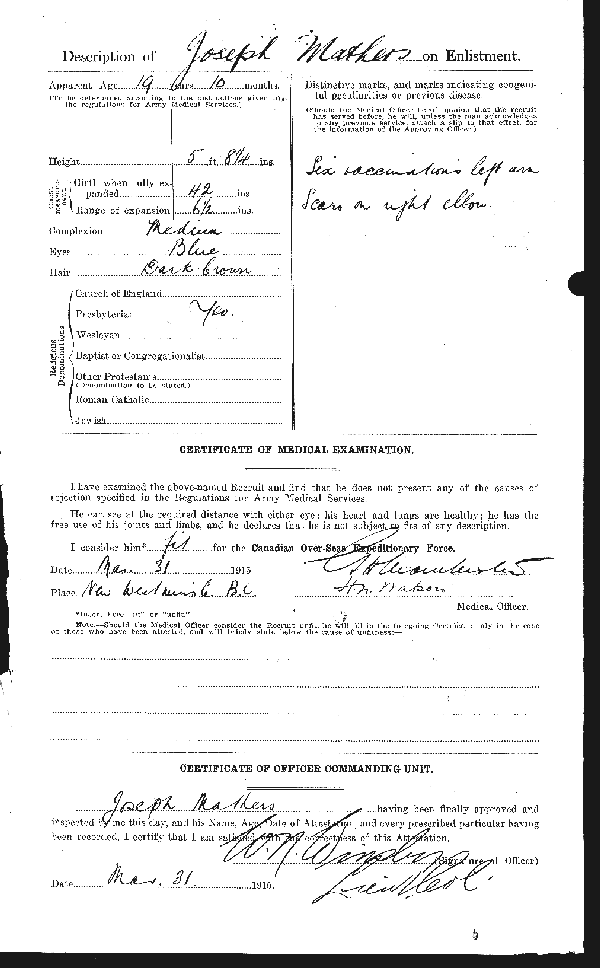 Description of Joseph Mathers on Enlistment.
Apparent Age 19 years 10 months.
(To be determined according to the instructions given in the regulations for Army Medical Services.)
Distinctive marks, and marks indicating congenital peculiarities or previous disease
(Should the Medical Officer be of opinion that the recruit has served before, he will, unless the man acknowledges to any previous service, attach a slip to that effect, for the information of the Approving Officer.)
Height 5 ft. 8¼ ins.
Chest measurement
Girth when fully expanded 42 ins.
Range of expansion 6½ ins.
Complexion Medium
Eyes Blue
Hair Dark brown
Six vaccinations left arm
Scars on right elbow
Religious Denominations
Church of England
Presbyterian Yes.
Wesleyan
Baptist or Congregationalist
Other Protestants
(Denomination to be stated.)
Roman Catholic
Jewish
CERTIFICATE OF MEDICAL EXAMINATION.
I have examined the above-named Recruit and find that he does not present any of the causes of
rejection specified in the Regulations for Army Medical Services.
He can see at the required distance with either eye; his heart and lungs are healthy; he has the
free use of his joints and limbs, and he declares that he is not subject to fits of any description.
I consider him* fit for the Canadian Over-Seas Expeditionary Force.
Date Mar 31 1915
Place New Westminster B.C.
Medical Officer.
*Insert here "fit" or "unfit"
Note.—Should the Medical Officer consider the Recruit unfit, he will fill in the foregoing Certificate only in the case
of those who have been attested, and will briefly state below the cause of unfitness:—
CERTIFICATE OF OFFICER COMMANDING UNIT.
Joseph Mathers having been finally approved and
inspected by me this day, and his Name, Age, Date of Attestation, and every prescribed particular having
been recorded, I certify that I am satisfied with the correctness of this Attestation.
(Signature of Officer)
Lieut Col.
Date Mar. 31 1915.